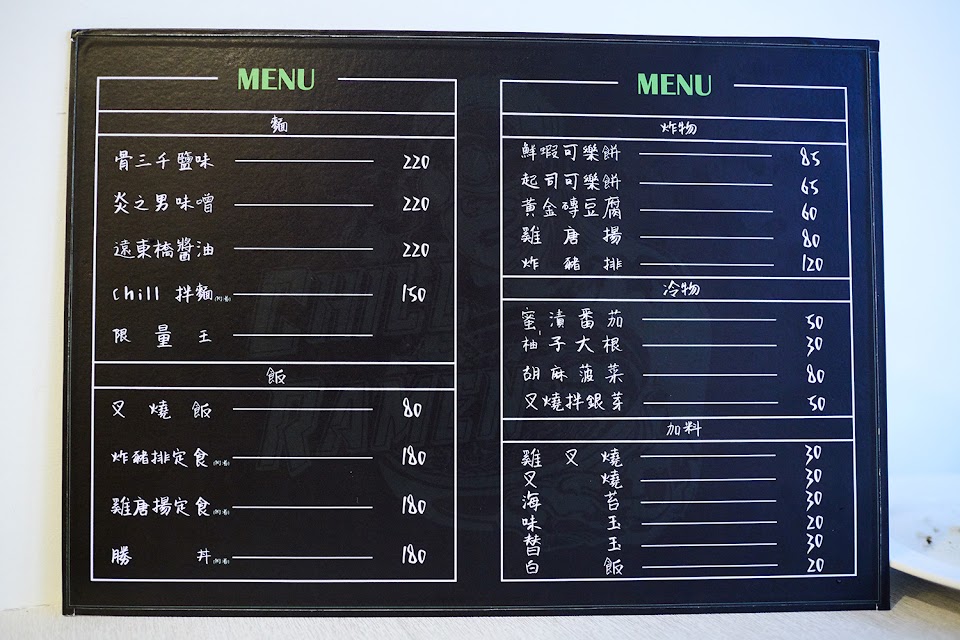 MENU
麵
骨三千鹽味 220
炎之男味噌 220
遠東橋醬油 220
chill 拌麵 150
限量王
飯
叉燒飯 80
炸豬排定食 180
雞唐揚定食 180
勝丼 180
MENU
炸物
鮮蝦可樂餅 85
起司可樂餅 65
黃金磚豆腐 60
雞唐揚 80
炸豬排 120
冷物
蜜漬番茄 50
柚子大根 30
胡麻菠菜 80
叉燒拌銀芽 50
加料
雞叉燒 30
叉燒 30
海苔 30
味玉 20
替玉 30
白飯 20
CHILL
RAMEN